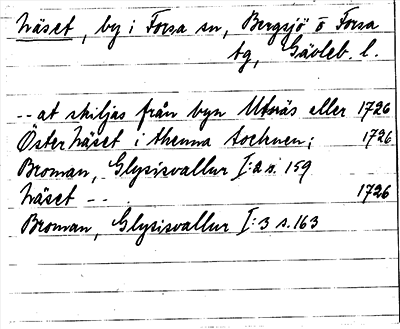 Näset, by i Forsa sn, Bergsjö o Forsa
tg, Gävleb. l.
-- at skiljas från byn Utnäs eller 1726
Öster Näset i thenna sochnen; 1726
Broman, Glysisvallur I:2 s. 159
Näset -- 1726
Broman, Glysisvallur I:3 s. 163